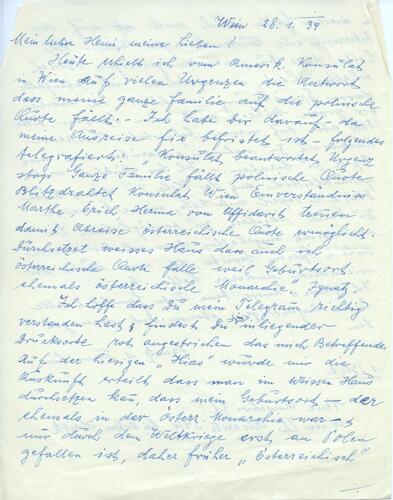 Wien 28.1.39
Mein lieber Heini, meine Lieben!
Heute erhielt ich vom Amerik. Konsulat
in Wien auf vielen Urgenzen die Antwort
dass meine ganze Familie auf die polnische
Quote fällt. - Ich habe Dir darauf - da
meine Ausreise fix befristet ist - folgendes
telegrafiert: "Konsulat beantwortet Urgenz
stop Ganze Familie fällt polnische Quote
Blitzdrahtet Konsulat Wien Einverständniss
Martha, Erich, Herma von Affidavit trennen
damit Abreise österreichische Quote ermöglicht.
Durchsetzet weisses Haus dass auch ich
österreichische Quote falle weil Geburtsort
ehemals österreichische Monarchie" Ignatz.
Ich hoffe dass Du mein Telegram richtig
verstanden hast, findest Du inliegender
Drucksorte rot angestrichen das mich Betreffende.
Auf der hiesigen "Hias" wurde mir die
Auskunft erteilt dass man im Weissen Haus
durchsetzen kan, dass mein Geburtsort - der
ehemals in der österr. Monarchie war -
nur durch dem Weltkriege erst an Polen
gefallen ist, daher früher "Österreichisch"